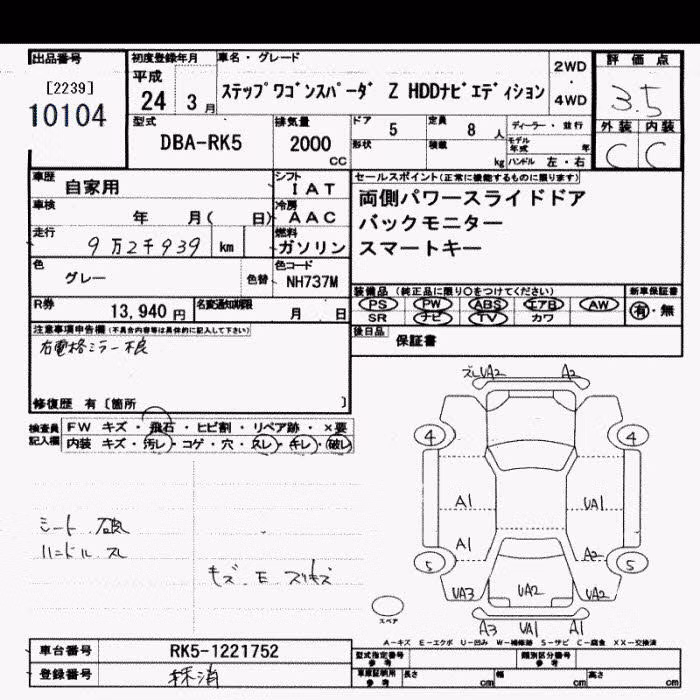 出品番号
[2239]
10104
初度登録年月
平成
24 3月
車名・グレード
ステップワゴンスパーダ Z HDDナビエディション
2WD
・
4WD
評価点
3.5
外装 内装
C C
型式
DBA-RK5
排気量
2000
cc
ドア 5
定員 8人
形状
積載 kg
ディーラー・並行
モデル年式 年
ハンドル 左・右
車歴 自家用
シフト
IAT
車検 年 月( 日)
冷房
AAC
走行 9万2千939 km
燃料
ガソリン
セールスポイント(正常に機能するものに限ります)
両側パワースライドドア
バックモニター
スマートキー
色 グレー 色替
色コード
NH737M
R券 13,940円
名変通知期限 月 日
装備品(純正品に限り○をつけてください)
PS PW ABS エアB AW
SR ナビ TV カワ
新車保証書
有・無
後日品 保証書
注意事項申告欄(不具合内容等は具体的に記入して下さい)
右電格ミラー不良
修復歴 有〔箇所 〕
検査員記入欄
FW キズ・飛石・ヒビ割・リペア跡・×要
内装 キズ・汚レ・コゲ・穴・スレ・キレ・破レ
ズレUA2 A2
4 4
A1 UA1
A1 A2
5 5
UA3 UA2 UA2
A3 UA1 A1
スペア
シート
ハンドル スレ
キズ E スリキズ
A-キズ E-エクボ U-凹み W-補修跡 S-サビ C-腐食 XX-交換済
車台番号 RK5-1221752
登録番号 抹消
型式指定番号
参考
類別区分番号
参考
車庫証明用
参考
長さ cm 幅 cm 高さ cm